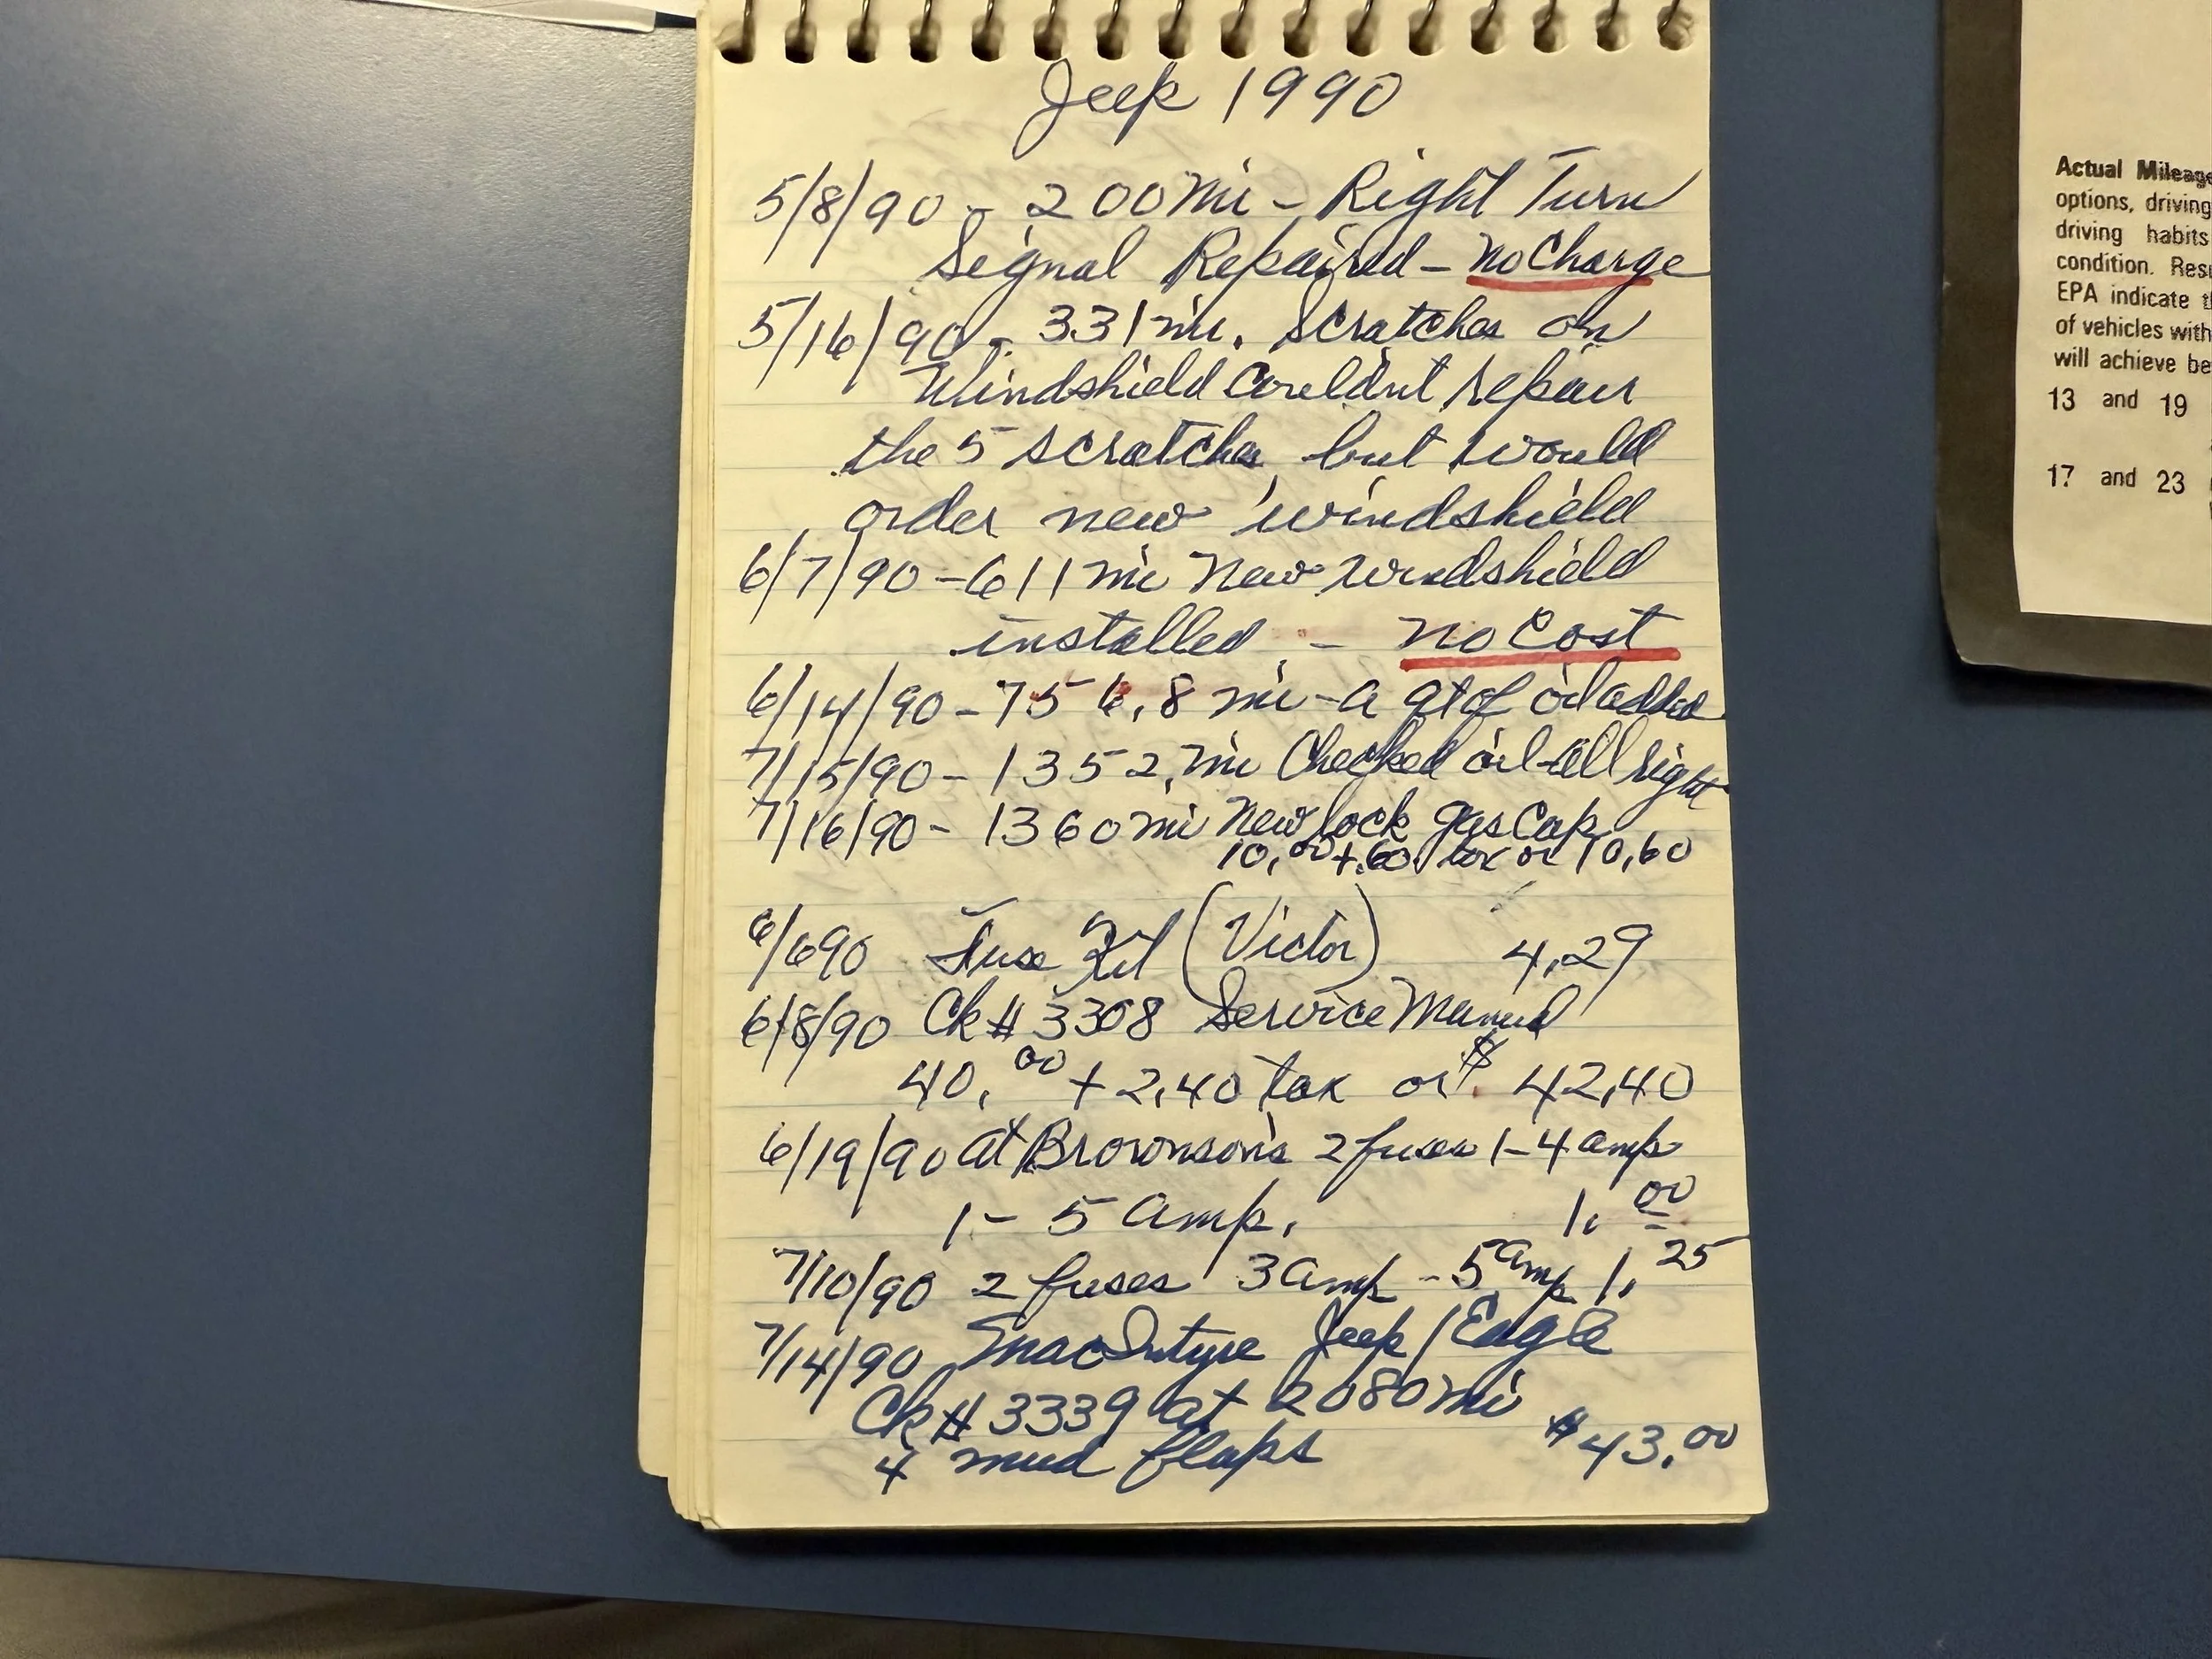 Jeep 1990
5/8/90 - 200 mi - Right Turn
Signal Repaired - No Charge
5/16/90 - 331 mi. Scratches on
Windshield Couldnt repair
the 5 scratches, but would
order new windshield
6/7/90 - 611 mi New windshield
installed - No Cost
6/14/90 - 756.8 mi - a qt of oil added
7/15/90 - 1352, mi Checked oil - all right
7/16/90 - 1360 mi New lock gas Cap
10.00 + .60 tax or 10.60
6/690 Fuse Kit (Victor) 4.29
6/8/90 Ck# 3308 Service Manual
40.00 + 2.40 tax or $ 42.40
6/19/90 at Brownson's 2 fuses 1-4 amp
1 - 5 amp. 1.00
7/10/90 2 fuses 3 amp - 5 amp 1.25
7/14/90 MacIntyre Jeep/Eagle
Ck# 3339 at 2080 mi
4 mud flaps $43.00
Actual Mileage
options, driving
driving habits
condition.
EPA indicate
of vehicles with
will achieve
13 and 19
17 and 23